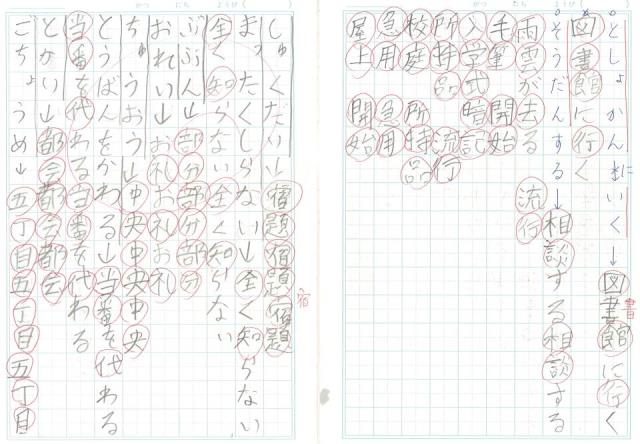 がつ にち ようび( )
としょかんにいく→図書館に行く
書
図書館に行く
そうだんする→相談する相談する
雨雲が去る 流行
毛筆 開始
入学式 暗記
所持品 流行
校庭 所持品
急用 急用
屋上 開始
がつ にち ようび( )
しゅくだい→宿題宿題宿題
宿
まったくしらない→全く知らない
全く知らない全く知らない
ぶぶん→部分部分部分
おれい→お礼お礼お礼
ちゅうおう→中央中央中央
とうばんをかわる→当番を代わる
当番を代わる当番を代わる
とかい→都会都会都会
ごちょうめ→五丁目五丁目五丁目